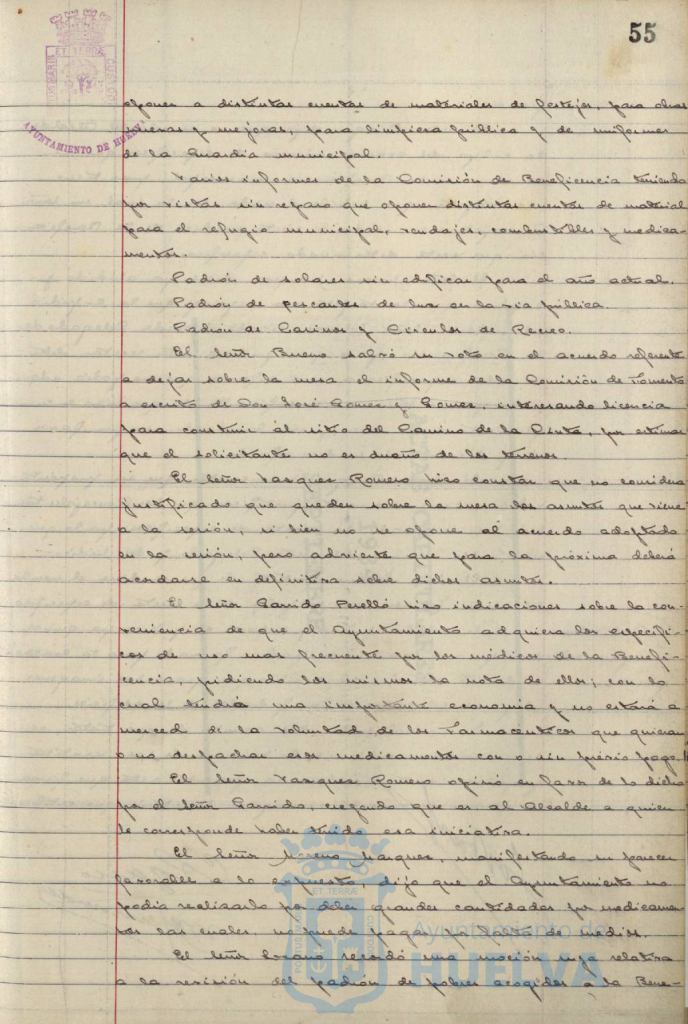 55
AYUNTAMIENTO DE HUELVA
oponer a distintas cuentas de materiales de festejos, para obras
nuevas y mejoras, para limpieza pública y de uniformes
de la Guardia municipal.
Varios informes de la Comisión de Beneficencia teniendo
por vistas sin reparo que oponer distintas cuentas de material
para el refugio municipal, vendajes, combustibles y medica-
mentos.
Padrón de solares sin edificar para el año actual.
Padrón de pescantes de luz en la vía pública.
Padrón de Casinos y Círculos de Recreo.
El Señor Bueno salvó su voto en el acuerdo referente
a dejar sobre la mesa el informe de la Comisión de Fomento
a escrito de Don José Gomez y Gomez, interesando licencia
para construir al sitio del Camino de la Cinta, por estimar
que el solicitante no es dueño de los terrenos.
El Señor Vazquez Romero hizo constar que no considera
justificado que queden sobre la mesa los asuntos que viene
a la sesión, si bien no se opone al acuerdo adoptado
en la sesión, pero advierte que para la próxima deberá
acordarse en definitiva sobre dichos asuntos.
El Señor Garrido Perelló hizo indicaciones sobre la con-
veniencia de que el Ayuntamiento adquiera los específi-
cos de uso mas frecuente por los médicos de la Benefi-
cencia, pidiendo los mismos la nota de ellos; con lo
cual tendrá una importante economía y no estará a
merced de la voluntad de los Farmaceuticos que quieran
o no despachar esos medicamentos con o sin previo pago.
El Señor Vazquez Romero opinó en favor de lo dicho
por el Señor Garrido, creyendo que es al Alcalde a quien
le corresponde haber tenido esa iniciativa.
El Señor Moreno Marquez, manifestando su parecer
favorable a lo expuesto, dijo que el Ayuntamiento no
podía realizarlo por deber grandes cantidades por medicamen
tos las cuales, no puede pagar por falta de medios.
El Señor Lozano recordó una moción suya relativa
a la revisión del padrón de pobres acogidos a la Bene-
Ayuntamiento de
HUELVA